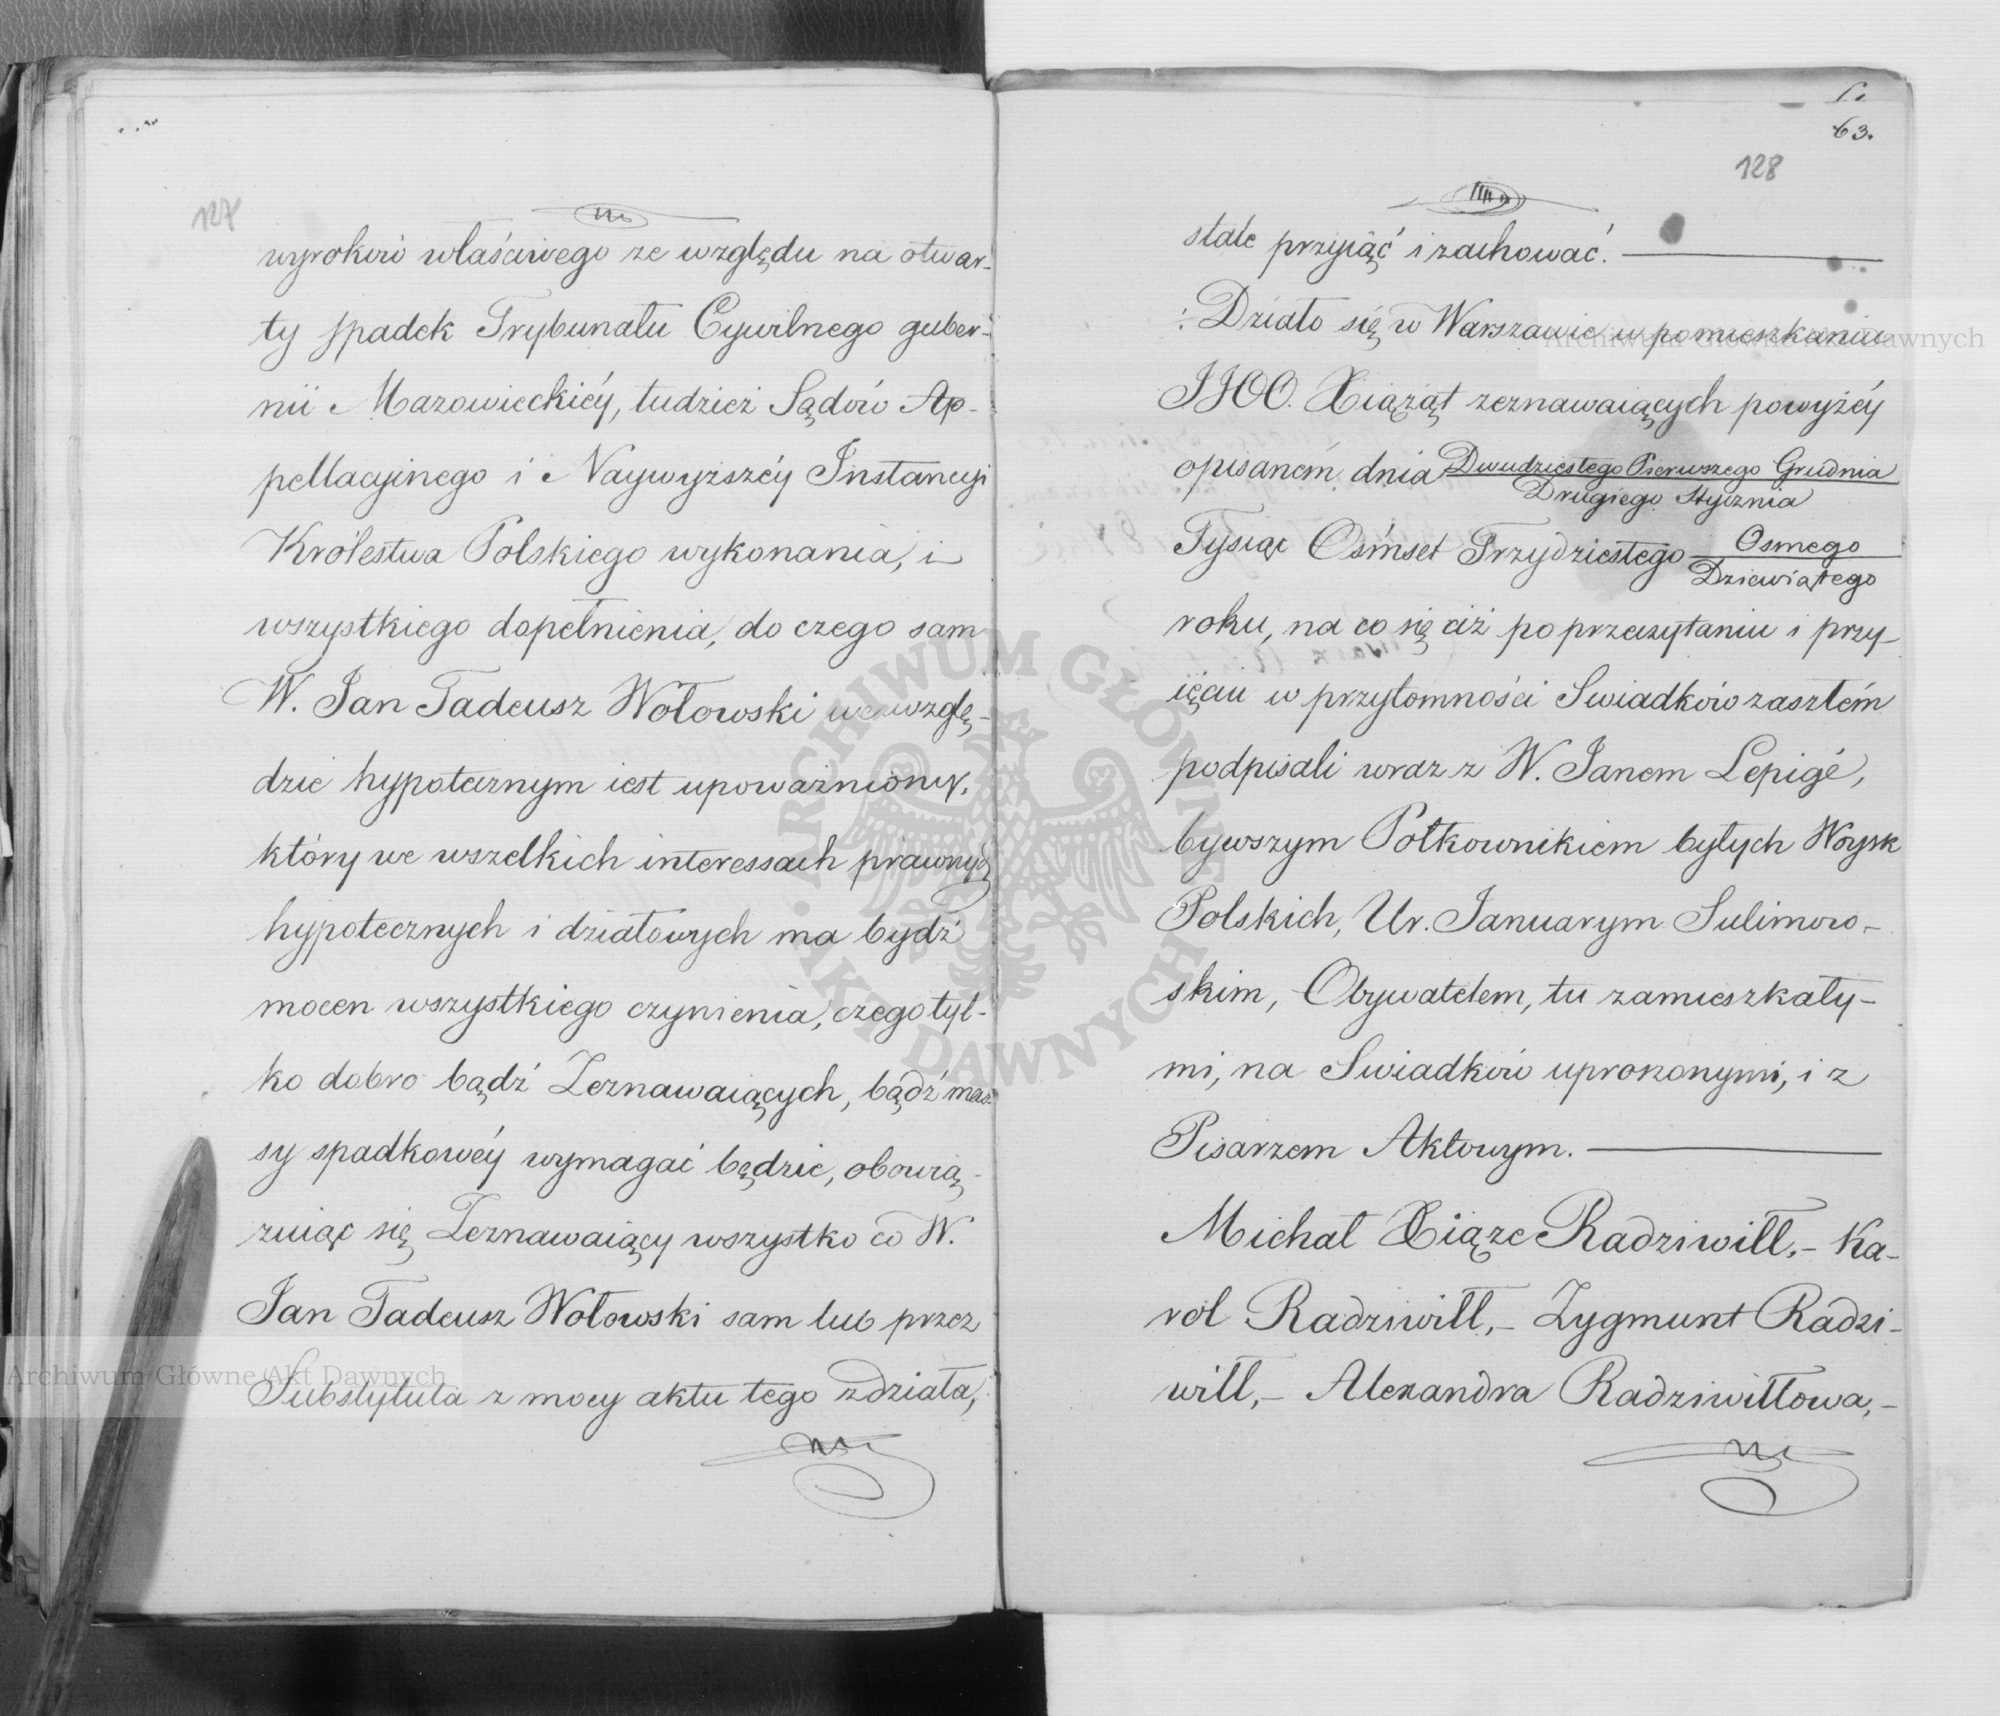 127
wyroków właściwego ze względu na otwar-
ty spadek Trybunału Cywilnego guber-
nii Mazowieckiéy, tudzież Sądów Ap-
pellacyinego i Naywyższéy Instancyi
Królestwa Polskiego wykonania, i
wszystkiego dopełnienia, do czego sam
W. Jan Tadeusz Wołowski we wzglę-
dzie hypotecznym iest upoważniony,
który we wszelkich interessach prawnych
hypotecznych i działowych ma bydź
mocen wszystkiego czynienia, czego tyl-
ko dobro bądź Zeznawaiących, bądź mas-
sy spadkowéy wymagać będzie, obowią-
zuiąc się Zeznawaiący wszystko co W.
Jan Tadeusz Wołowski sam lub przez
Substytuta z mocy aktu tego zdziała,
63.
128
stale przyiąć i zachować.
Działo się w Warszawie w pomieszkaniu
JJOO. Xiążąt zeznawaiących powyżéy
opisaném dnia Dwudziestego Pierwszego Grudnia
Drugiego Stycznia
Tysiąc Ośmset Trzydziestego Osmego
Dziewiątego
roku, na co się ciż po przeczytaniu i przy-
ięciu w przytomności Swiadków zaszłém
podpisali wraz z W. Janem Lepigé,
bywszym Półkownikiem byłych Woysk
Polskich, Ur. Januarym Sulimow-
skim, Obywatelem, tu zamieszkały-
mi, na Swiadków uproszonymi, i z
Pisarzem Aktowym.
Michał Xiąże Radziwiłł,- Ka-
rol Radziwiłł,- Zygmunt Radzi-
wiłł,- Alexandra Radziwiłłowa,-
Archiwum Główne Akt Dawnych
Archiwum Główne Akt Dawnych
ARCHIWUM GŁÓWNE AKT DAWNYCH